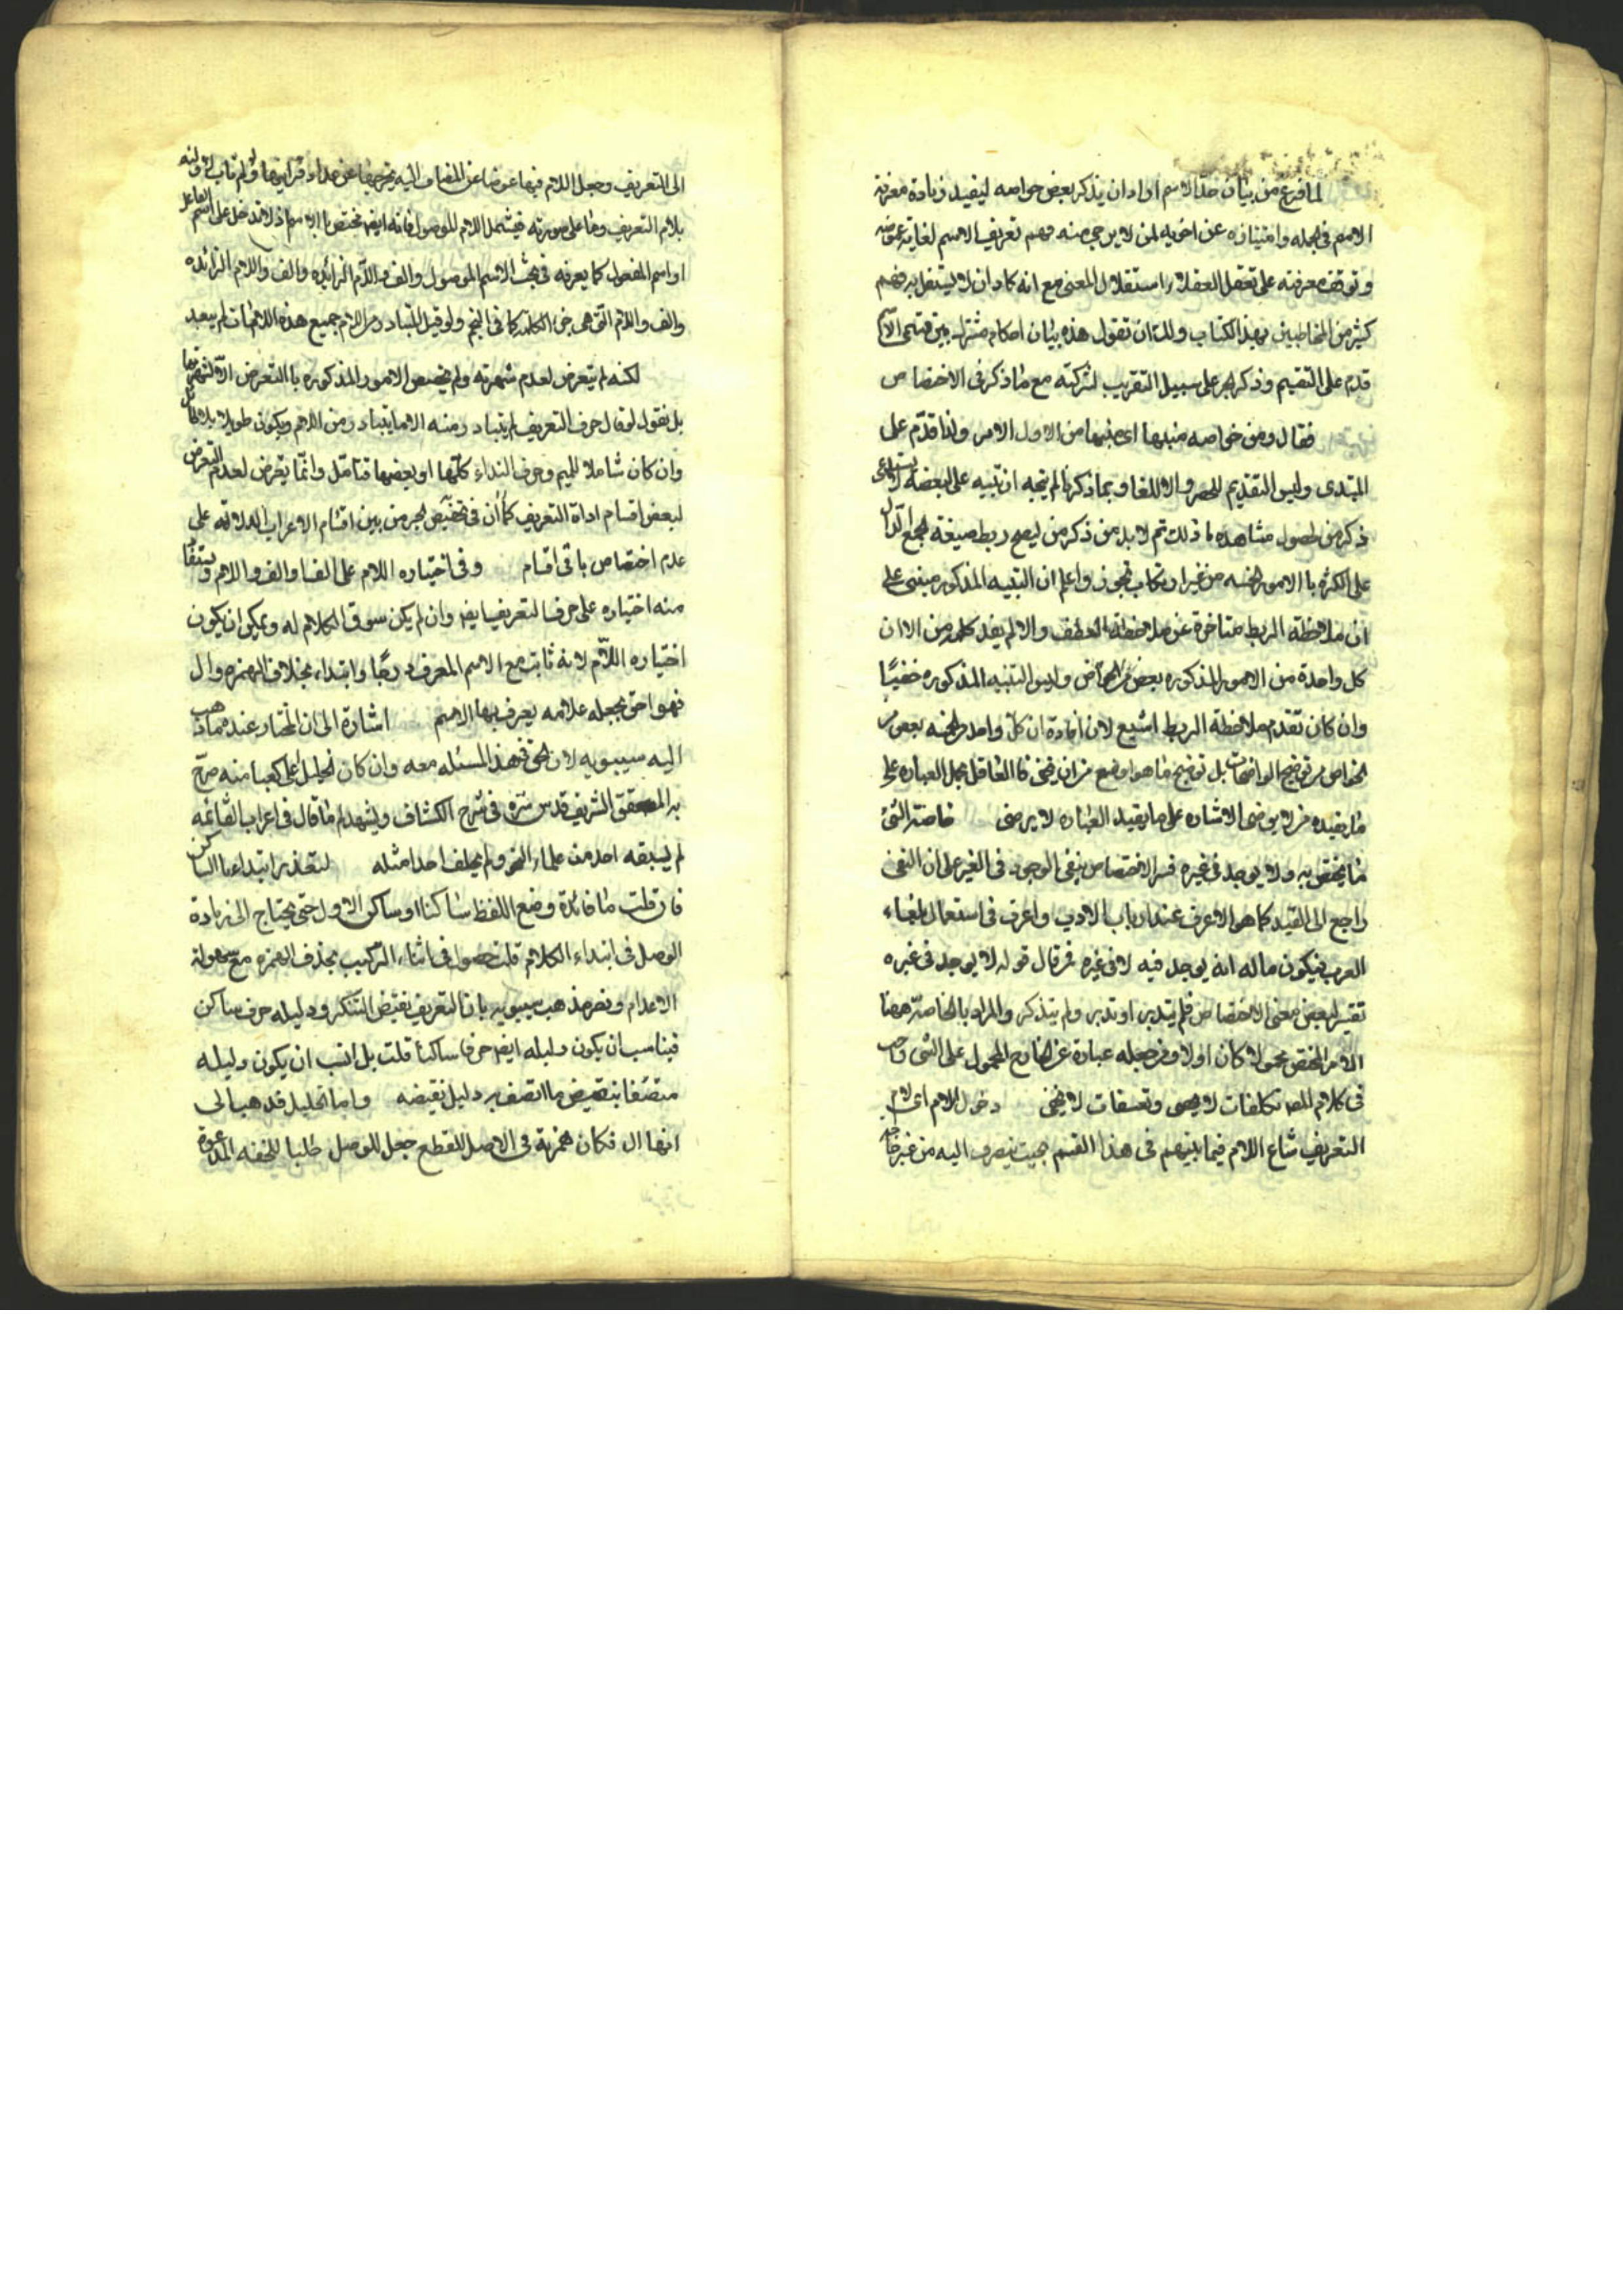 لما فرغ من بيان حد الاسم اراد ان يذكر بعض خواصه ليفيد زيادة معرفة
الاسم في الجمله وامتيازه عن اخويه لمن لا يرجى منه فهم تعريف الاسم لغاية غموضه
وتوقف معرفته على تعقل العقلاء استقلال المعنى مع انه كاد ان لا يستقل به فهم
كثير من المخاطبين بهذا الكتاب ولك ان تقول هذه بيان احكام مشترك بين قسمى
قدم على التقسيم وذكر الجر على سبيل التقريب لشركته مع ما ذكر فى الاختصاص
فقال ومن خواصه منبها اى منبها من الاول الامر ولذا قدم على
المبتدى وليس التقديم للحصر والا للغا وبما ذكرنا لم يتجه ان تنبيه على البعضة
ذكر من لحصول مشاهده ذلك ثم لا بد من ذكر من ليصح ربط صيغة الجمع
على الكثرة بالامور الخمسه من غير ارتكاب تجوز واعلم ان التنبيه المذكور مبنى على
ان ملاحظة الربط متاخرة عن ملاحظة العطف والا لم يفد كلمة من الا ان
كل واحدة من الامور المذكوره بعض من الخواص وليس التنبيه المذكوره خفيًا
وان كان تقدم ملاحظة الربط اشيع لان افادة ان كل واحد من الخمسه بعض من
الخواص من توضيح الواضحات بل توضيح ما هو اوضع من ان يخفى فالعاقل يحمل العباره على
ما يفيده من لا يرضى الاشاره على ما يفيد العباره لا يرضى خاصة الشئ
ما يختص به ولا يوجد فى غيره فسر الاختصاص بنفى الوجود فى الغير على ان النفى
راجع الى القيد كما هو الاعرف عند ارباب الادب واعرف فى استعمال بلغاء
العرب فيكون ماله انه يوجد فيه لا فى غيره فمن قال قوله لا يوجد فى غيره
تفسير لبعض معنى الاختصاص فلم يتدبر او تدبر ولم يتذكر والمراد بالخاصة ههنا
الامر المختص محمولا كان اولا ومن جعله عبارة عن الخارج المحمول على الشى
فى كلام المص تكلفات لا يحصى وتعسفات لا يخفى دخول اللام اى لام
التعريف شاع اللام فيما بينهم فى هذا القسم بحيث ينصرف اليه من غير
الى التعريف وجعل اللام فيها عوضا عن المضاف اليه يخرجها عن عداد قرائنها ولم
بلام التعريف وما على صورته فيشمل اللام الموصول فانه ايضا مختص بالاسم اذ لا تدخل على اسم الفاعل
او اسم المفعول كما يعرفه فى بحث الاسم الموصول والف واللام الزائده والف واللام الزائده
والف واللام التى هى جزء الكلمة كما فى النجم ولو قيل المتبادر من اللام جميع هذه اللامات لم يبعد
لكنه لم يتعرض لعدم شهرته ولم يخصص الامور المذكوره بالتعرض الا لشهرتها
بل نقول لو قال حرف التعريف لم يتبادر منه الا ما يتبادر من اللام ويكون طويلا بلا طائل
وان كان شاملا للميم وحرف النداء كلها او بعضها فتامل وانما يتعرض لعدم التعرض
لبعض اقسام اداة التعريف كما ان فى تخصيص الجر من بين اقسام الاعراب الدلالة على
عدم اختصاص باقى اقسام وفى اختياره اللام على الف والف واللام ويستفاد
منه اختياره على حرف التعريف ايضا وان لم يكن سوق الكلام له ويمكن ان يكون
اختياره اللام لانه ثابت مع الاسم المعرف درجا وابتداء بخلاف الهمزه وال
فهو احق بجعله علامه يعرف بها الاسم اشارة الى ان المختار عنده ما ذهب
اليه سيبويه لان الحق فى هذا المسئله معه وان كان الخليل اعلى كعبا منه صرح
به المحقق الشريف قدس سره فى شرح الكشاف ويشهد له ما قال فى اعراب الفاتحه
لم يسبقه احد من علماء النحو ولم يخلف احدا مثله لتعذر ابتداء بالساكن
فان قلت ما فائدة وضع اللفظ ساكنا او ساكن الاول حتى يحتاج الى زيادة
الوصل فى ابتداء الكلام قلت حصول فى اثناء التركيب بحذف الهمزه مع سهولة
الادغام ونصر مذهب سيبويه بان التعريف نقيض التنكر ودليله حرف ساكن
فيناسب ان يكون دليله ايضا حرفا ساكنا قلت بل انسب ان يكون دليله
متصفا بنقيض ما اتصف به دليل نقيضه واما الخليل فذهب الى
انها ال فكان همزة فى الاصل للقطع جعل للوصل طلبا للخفه